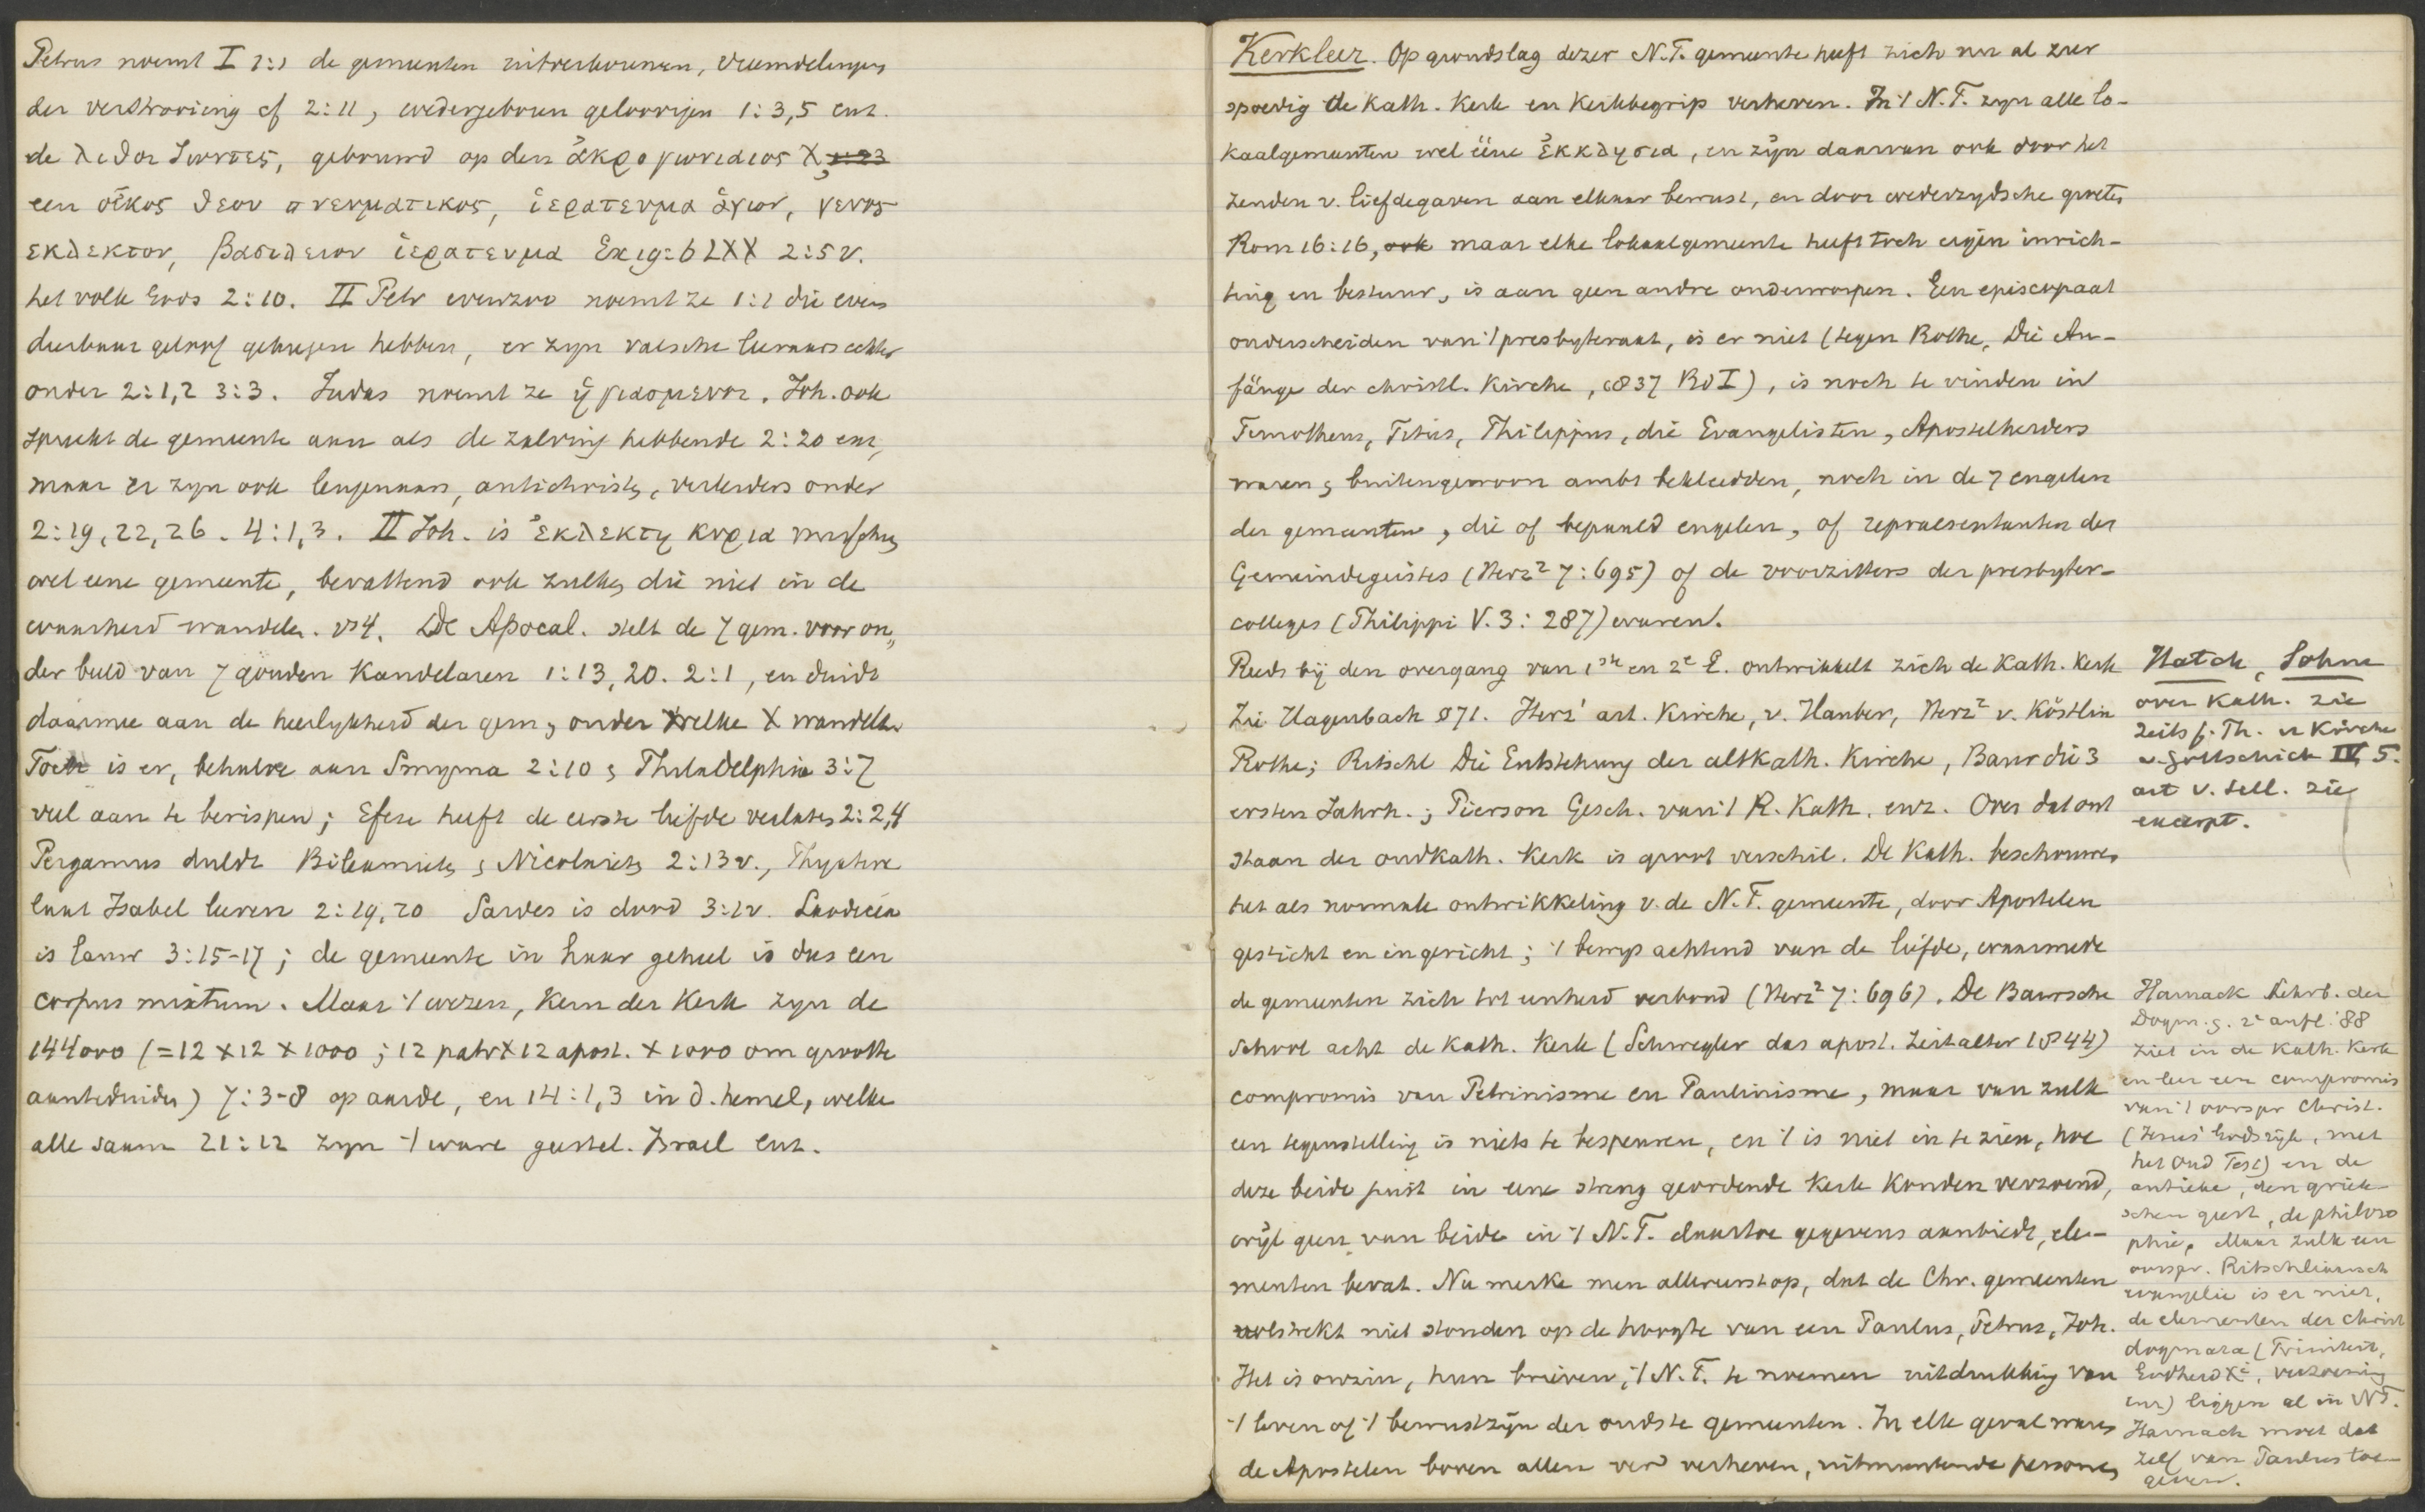 Petrus noemt I 1:1 de gemeenten uitverkorenen, vreemdelingen
der verstrooiing cf 2:11, wedergeboren geloovigen 1:3,5 enz.
de λιθοι ζωντες, gebouwd op den ἀκρογωνιαιος X, 1:23
een οἰκος θεου πνευματικος, ἱερατευμα ἁγιον, γενος
εκλεκτον, βασιλειον ἱερατευμα Ex 19:6 LXX 2:5v.
het volk Gods 2:10. II Petr evenzoo noemt ze 1:1 die even
dierbaar geloof gekregen hebben, er zyn valsche leeraars echter
onder 2:1,2 3:3. Judas noemt ze ἡγιασμενοι. Joh. ook
spreekt de gemeente aan als de zalving hebbende 2:20 enz,
maar er zyn ook leugenaars, antichristen, verleiders onder
2:19,22,26. 4:1,3. II Joh. is ἐκλεκτη κυρια misschien
wel eene gemeente, bevattend ook zulken die niet in de
waarheid wandelen. vs4. De Apocal. stelt de 7 gem. voor on„
der beeld van 7 gouden Kandelaren 1:13,20. 2:1, en duidt
daarmee aan de heerlykheid der gem, onder welke X wandelt.
Toch is er, behalve aan Smyrna 2:10 & Philadelphia 3:7
veel aan te berispen; Efeze heeft de eerste liefde verlaten 2:2,4
Pergamus duldt Bileamieten & Nicolaieten 2:13v., Thyatire
laat Izabel leeren 2:19,20 Sardes is dood 3:1v. Laodicea
is lauw 3:15-17; de gemeente in haar geheel is dus een
corpus mixtum. Maar 't wezen, Kern der Kerk zyn de
144000 (=12 x 12 x 1000; 12 patr x 12 apost. x 1000 om grootte
aanteduiden) 7:3-8 op aarde, en 14:1,3 in d. hemel, welke
alle saam 21:12 zyn 't ware geestel. Israel enz.
Kerkleer. Op grondslag dezer N.T. gemeente heeft zich nu al zeer
spoedig de Kath. Kerk en Kerkbegrip verheven. In 't N.T. zyn alle lo-
kaalgemeenten wel ééne ἐκκλησια, en zijn daarvan ook door het
zenden v. liefdegaven aan elkaar bewust, en door wederzydsche groeten
Rom 16:16, ook maar elke lokaalgemeente heeft toch eigen inrich-
ting en bestuur, is aan geen andre onderworpen. Een episcopaat
onderscheiden van 't presbyteraat, is er niet (tegen Rothe, Die An-
fänge der christl. Kirche, 1837 Bd I), is noch te vinden in
Timotheus, Titus, Philippus, die Evangelisten, Apostelherders
waren & buitengewoon ambt bekleedden, noch in de 7 engelen
der gemeenten, die of bepaald engelen, of repraesentanten des
Gemeindegeistes (Herz² 7:695) of de voorzitters der presbyter-
colleges (Philippi V. 3: 287) waren.
Reeds bij den overgang van 1ste en 2e E. ontwikkelt zich de Kath. Kerk
Zie Hagenbach §71. Herz¹ art. Kirche, v. Hauber, Herz² v. Köstlin
Rothe; Ritschl Die Entstehung der altkath. Kirche, Baur die 3
ersten Jahrh.; Pierson Gesch. van 't R. Kath. enz. Over dat ont
staan der oudkath. Kerk is groot verschil. De Kath. beschouwen
het als normale ontwikkeling v. de N.T. gemeente, door Apostelen
gesticht en ingericht; 't bewys achtend van de liefde, waarmede
de gemeenten zich tot eenheid verbond (Herz² 7:696). De Baursche
School acht de Kath. Kerk (Schwegler das apost. Zeitalter 1844)
compromis van Petrinisme en Paulinisme, maar van zulk
een tegenstelling is niets te bespeuren, en 't is niet in te zien, hoe
deze beide juist in eene streng geordende Kerk Konden verzoend,
wijl geen van beide in 't N.T. daartoe gegevens aanbiedt, ele-
menten bevat. Nu merke men allereerst op, dat de Chr. gemeenten
volstrekt niet stonden op de hoogte van een Paulus, Petrus, Joh.
Het is onzin, hun brieven, 't N.T. te noemen uitdrukking van
't leven of 't bewustzijn der oudste gemeenten. In elk geval waren
de Apostelen boven allen ver verheven, uitmuntende personen
Hatch, Sohm
over Kath. zie
Zeits f. Th. u Kirche
v. Gottschick IV, 5.
art v. Sell. zie
excerpt.
Harnack Lehrb. der
Dogm.g. 2e aufl. '88
ziet in de Kath. Kerk
en leer een compromis
van 't oorspr Christ.
(Jezus' Godsrijk, met
het Oud Test) en de
antieke, den griek-
schen geest, de philoso
phie. Maar zulk een
oorspr. Ritschliaansch
evangelie is er niet,
de elementen der christ
dogmata (Triniteit,
Godheid Xi, verzoening
enz) liggen al in NT.
Harnack moet dat
zelf van Paulus toe-
geven.